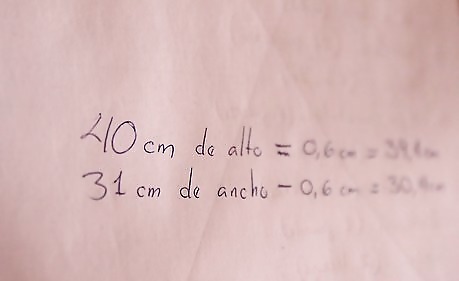 40 cm de alto = 0,6 cm = 39,4 cm
31 cm de ancho - 0,6 cm = 30,4 cm